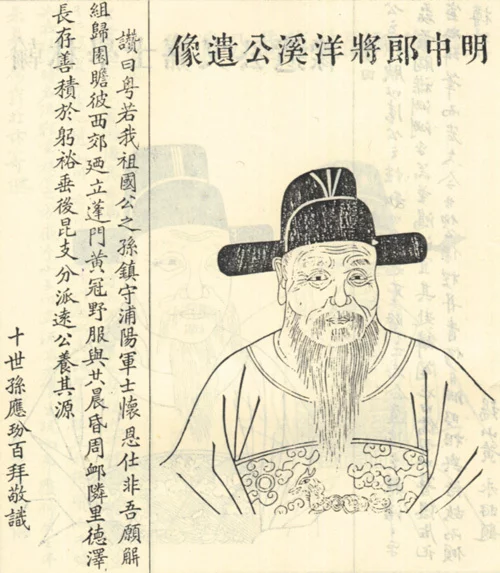 明中郎將洋溪公遺像
讚曰粤若我祖國公之孫鎮守浦陽軍士懷恩仕非吾願解
組歸園瞻彼西郊廼立蓬門黄冠野服與廿晨昏周卹隣里德澤
長存善積於躬裕垂後昆支分派逺公養其源
十世孫應玢百拜敬識